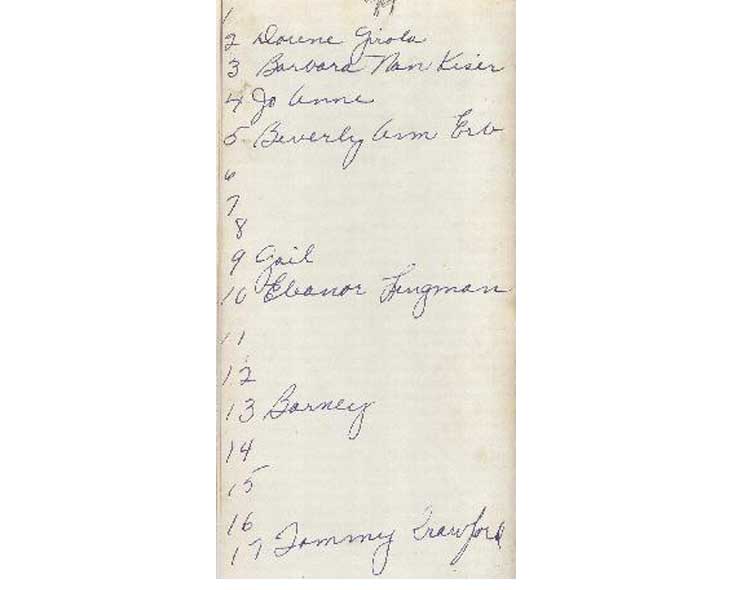 1
2 Dorene Girola
3 Barbara Nan Kiser
4 Jo Anne
5 Beverly Ann Erb
6
7
8
9 Gail
10 Eleanor
11
12
13 Barney
14
15
16
17 Tommy Crawford